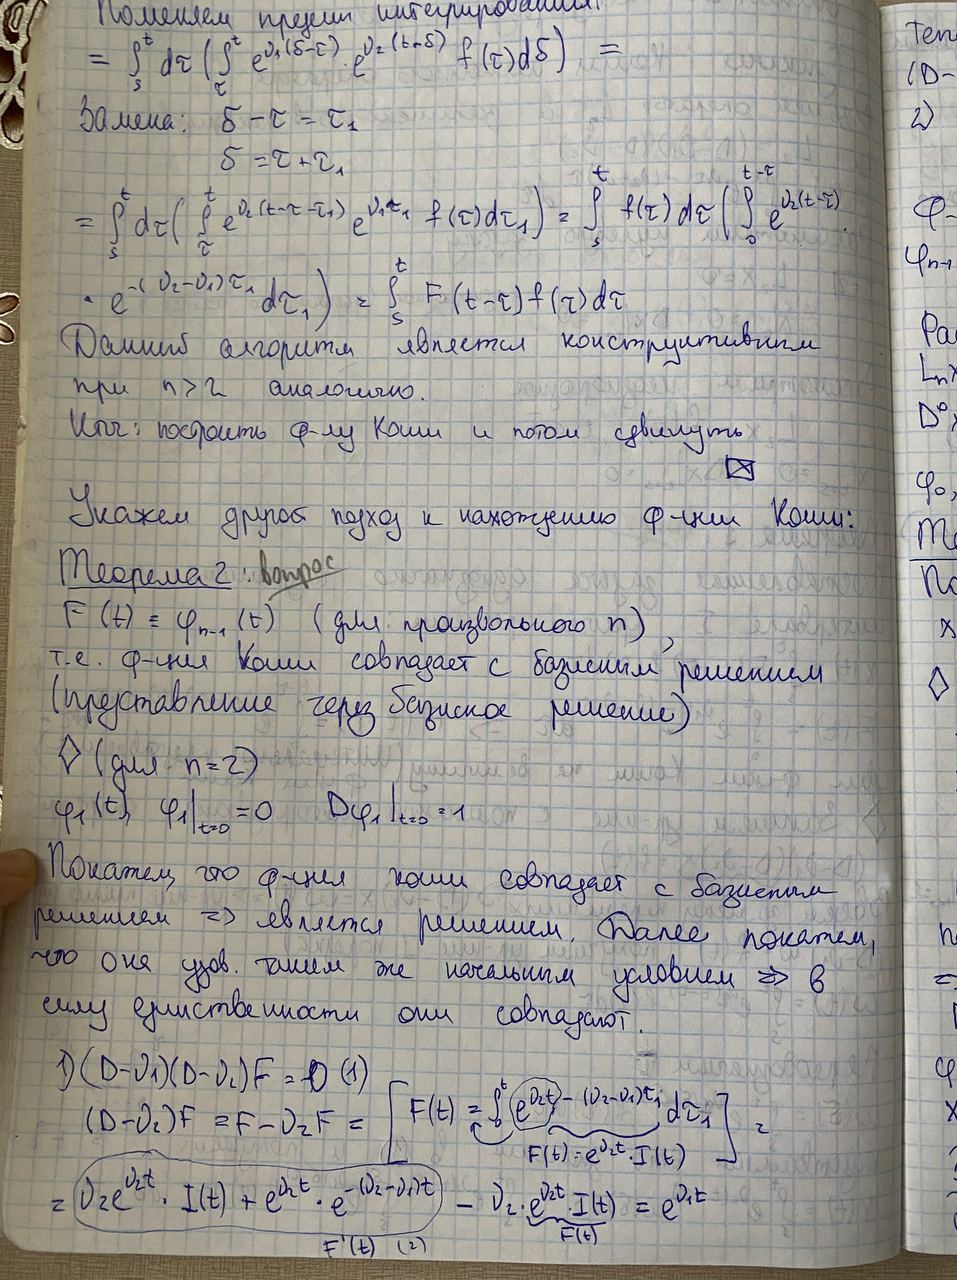 Поменяем пределы интегрирования:
= ∫ₛᵗ dτ (∫_τᵗ e^{ν₁(δ-τ)} · e^{ν₂(t-δ)} f(τ)dδ) =
Замена: δ - τ = τ₁
δ = τ + τ₁
= ∫ₛᵗ dτ (∫_τᵗ e^{ν₂(t-τ-τ₁)} e^{ν₁τ₁} f(τ)dτ₁) = ∫ₛᵗ f(τ)dτ (∫₀^{t-τ} e^{ν₂(t-τ)}
· e^{-(ν₂-ν₁)τ₁} dτ₁) = ∫ₛᵗ F(t-τ) f(τ)dτ
Данный алгоритм является конструктивным
при n>2 аналогично.
Ключ: построить ф-лу Коши и потом сдвинуть
Укажем другой подход к нахождению ф-ции Коши:
Теорема 2: вопрос
F(t) ≡ φₙ₋₁(t) (для произвольного n),
т.е. ф-ция Коши совпадает с базисным решением
(представление через базисное решение)
◊ (для n=2)
φ₁(t), φ₁|ₜ₌₀ = 0 Dφ₁|ₜ₌₀ = 1
Покажем, что ф-ция Коши совпадает с базисным
решением => является решением. Далее покажем,
что она удов. таким же начальным условием => в
силу единственности они совпадают.
1) (D-ν₁)(D-ν₂)F = 0 (1)
(D-ν₂)F = F - ν₂F = [F(t) = ∫₀ᵗ e^{ν₂t - (ν₂-ν₁)τ₁} dτ₁] =
F(t) = e^{ν₂t} · I(t)
= ν₂e^{ν₂t} · I(t) + e^{ν₂t} · e^{-(ν₂-ν₁)t} - ν₂ · e^{ν₂t} · I(t) = e^{ν₁t}
F'(t) (2) F(t)
Теп
(D-
2)
φ-
φₙ₋₁
Ра
Lₙx
D⁰
φ₀,
Те
По
x
◊